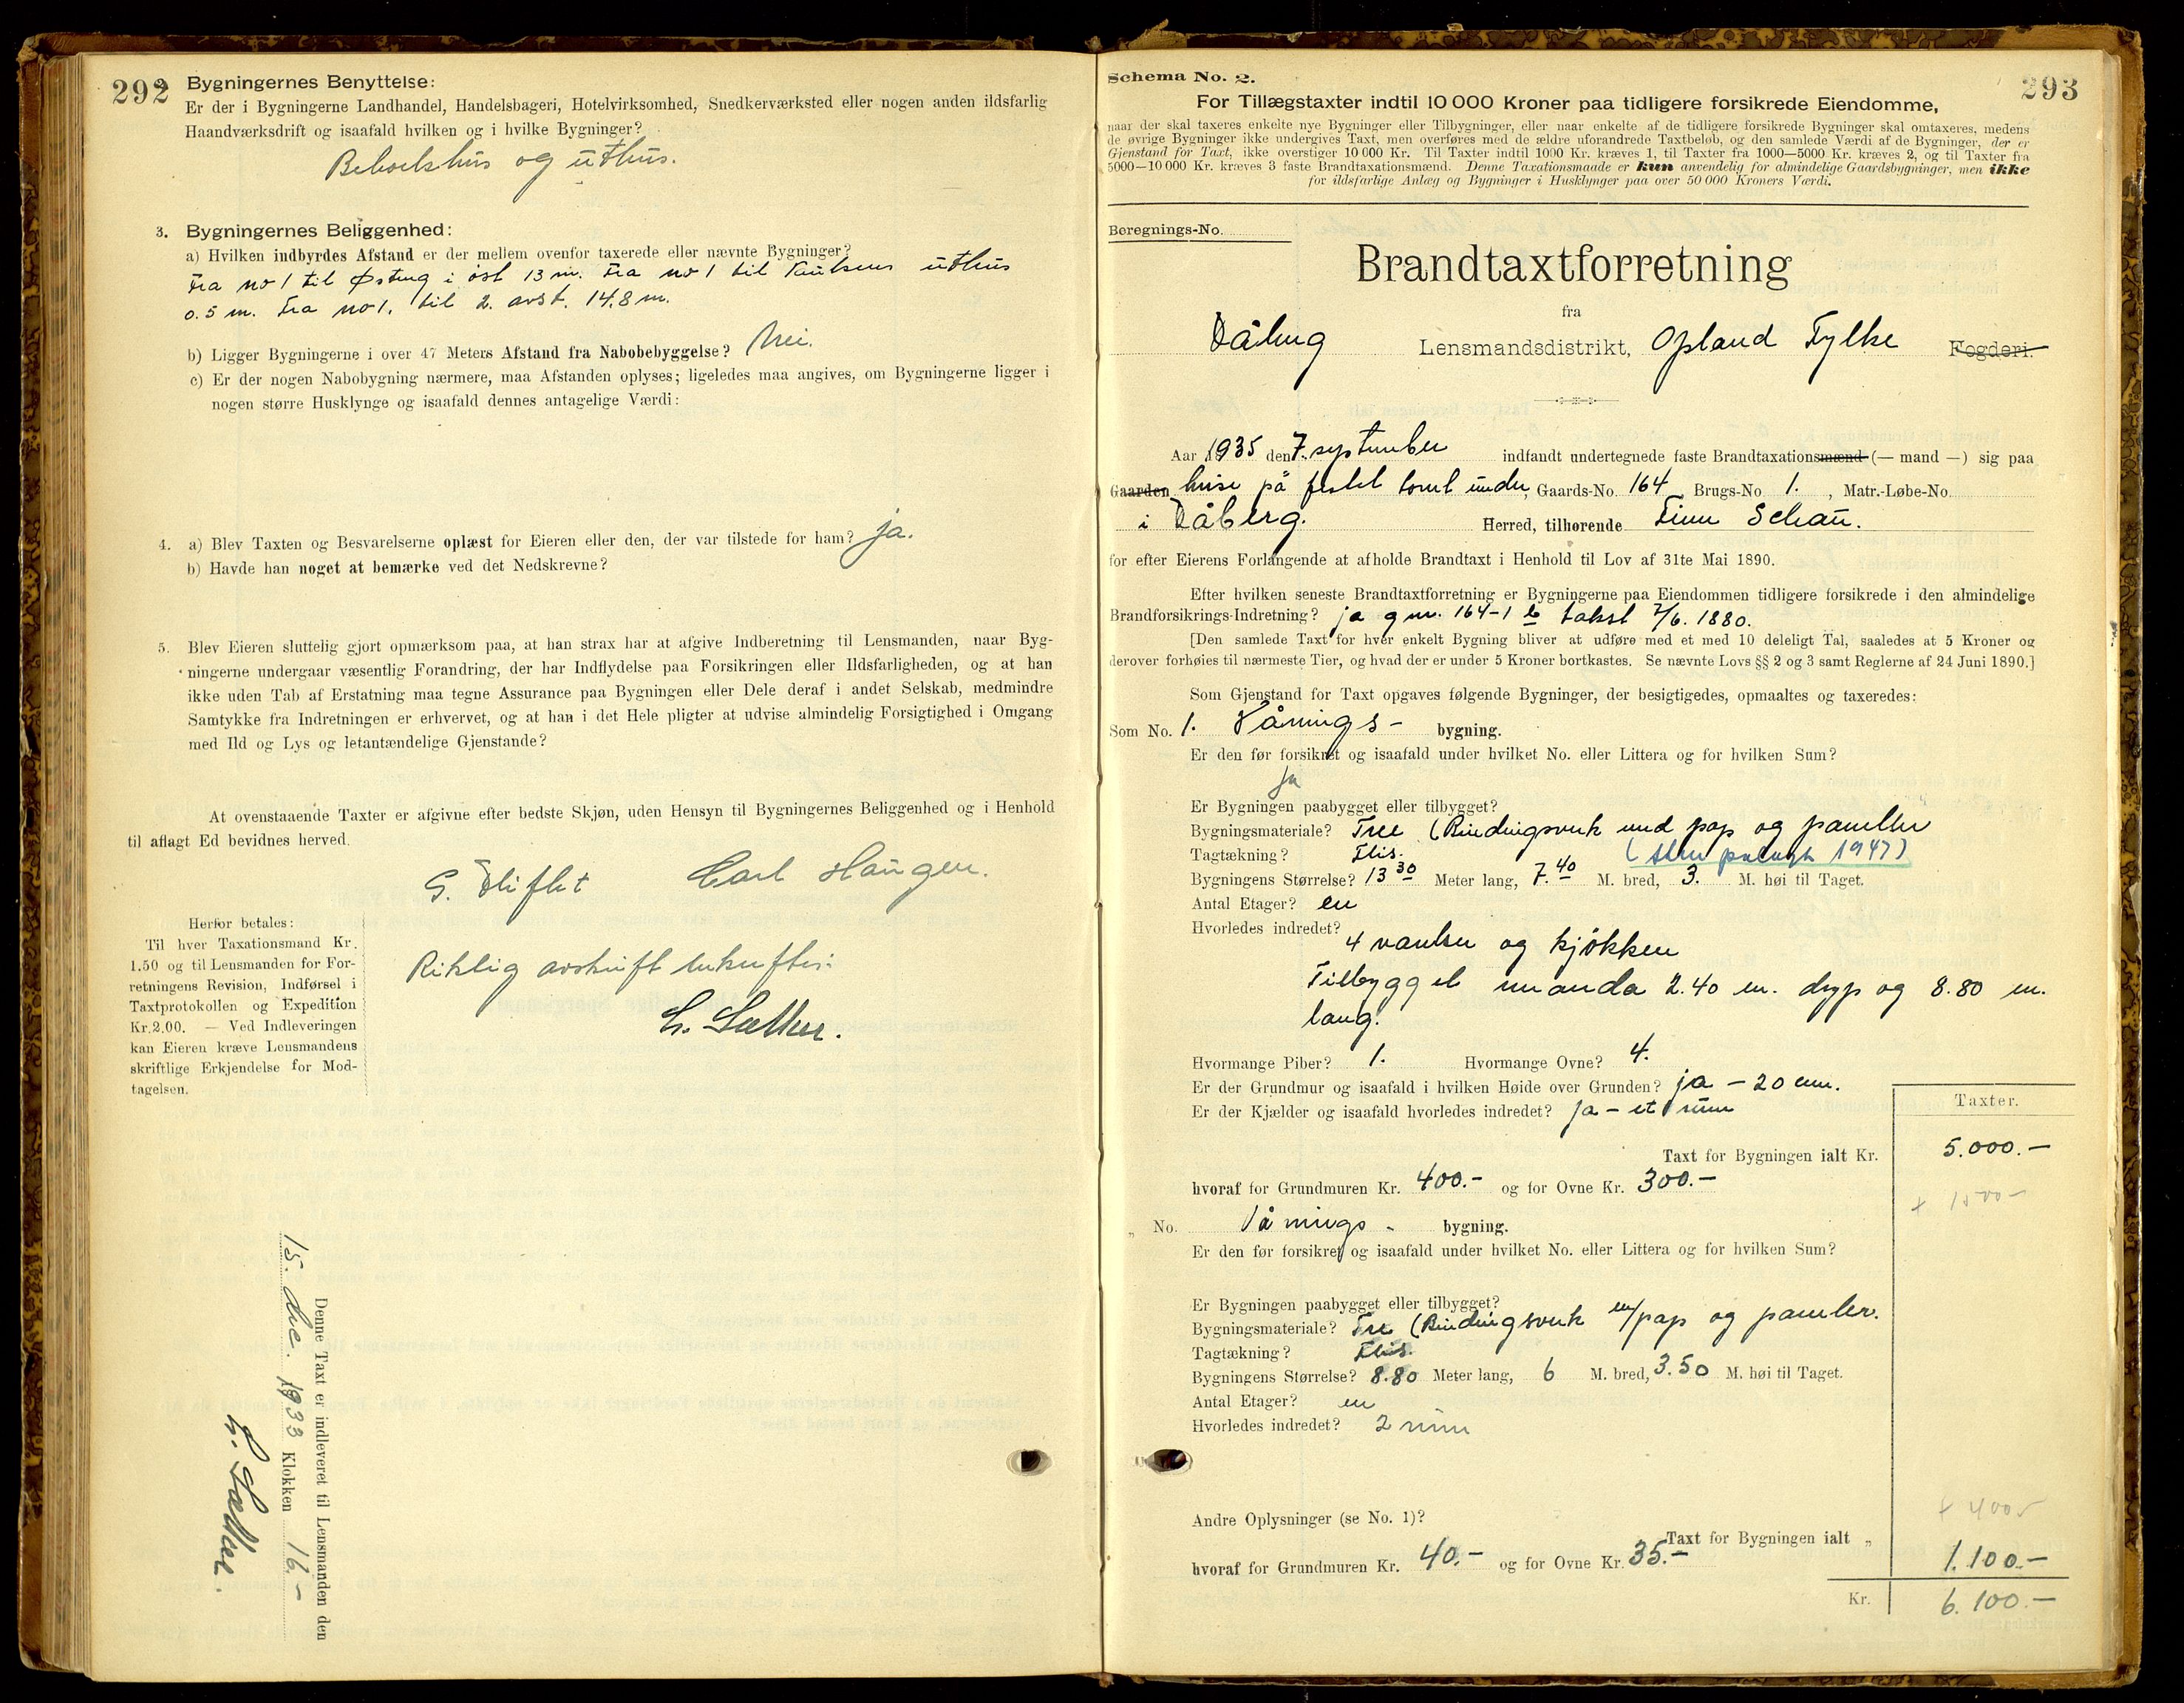 292
2. Bygningernes Benyttelse:
Er der i Bygningerne Landhandel, Handelsbageri, Hotelvirksomhed, Snedkerværksted eller nogen anden ildsfarlig
Haandværksdrift og isaafald hvilken og i hvilke Bygninger?
Beboelshus og uthus.
3. Bygningernes Beliggenhed:
a) Hvilken indbyrdes Afstand er der mellem ovenfor taxerede eller nævnte Bygninger?
Fra no 1 til i öst 13 m. Fra no 1 til uthus
0.5 m. Fra no 1. til 2. avst. 14.8 m.
b) Ligger Bygningerne i over 47 Meters Afstand fra Nabobebyggelse? Nei.
c) Er der nogen Nabobygning nærmere, maa Afstanden oplyses; ligeledes maa angives, om Bygningerne ligger i
nogen større Husklynge og isaafald dennes antagelige Værdi:
4. a) Blev Taxten og Besvarelserne oplæst for Eieren eller den, der var tilstede for ham? ja.
b) Havde han noget at bemærke ved det Nedskrevne?
5. Blev Eieren sluttelig gjort opmærksom paa, at han strax har at afgive Indberetning til Lensmanden, naar Byg-
ningerne undergaar væsentlig Forandring, der har Indflydelse paa Forsikringen eller Ildsfarligheden, og at han
ikke uden Tab af Erstatning maa tegne Assurance paa Bygningen eller Dele deraf i andet Selskab, medmindre
Samtykke fra Indretningen er erhvervet, og at han i det Hele pligter at udvise almindelig Forsigtighed i Omgang
med Ild og Lys og letantændelige Gjenstande?
At ovenstaaende Taxter er afgivne efter bedste Skjøn, uden Hensyn til Bygningernes Beliggenhed og i Henhold
til aflagt Ed bevidnes herved.
G. Fliflet Carl Haugen.
Herfor betales:
Til hver Taxationsmand Kr.
1.50 og til Lensmanden for For-
retningens Revision, Indførsel i
Taxtprotokollen og Expedition
Kr. 2.00. — Ved Indleveringen
kan Eieren kræve Lensmandens
skriftlige Erkjendelse for Mod-
tagelsen.
Riktig avskrift bekreftes:
L. Sæther.
Denne Taxt er indleveret til Lensmanden den
15. dec. 1933 Klokken 16.-
L. Sæther.
Schema No. 2.
293
For Tillægstaxter indtil 10 000 Kroner paa tidligere forsikrede Eiendomme,
naar der skal taxeres enkelte nye Bygninger eller Tilbygninger, eller naar enkelte af de tidligere forsikrede Bygninger skal omtaxeres, medens
de øvrige Bygninger ikke undergives Taxt, men overføres med de ældre uforandrede Taxtbeløb, og den samlede Værdi af de Bygninger, der er
Gjenstand for Taxt, ikke overstiger 10 000 Kr. Til Taxter indtil 1000 Kr. kræves 1, til Taxter fra 1000—5000 Kr. kræves 2, og til Taxter fra
5000—10 000 Kr. kræves 3 faste Brandtaxationsmænd. Denne Taxationsmaade er kun anvendelig for almindelige Gaardsbygninger, men ikke
for ildsfarlige Anlæg og Bygninger i Husklynger paa over 50 000 Kroners Værdi.
Beregnings-No.
Brandtaxtforretning
fra
Fåberg Lensmandsdistrikt, Opland Fylke Fogderi.
Aar 1935 den 7. september indfandt undertegnede faste Brandtaxationsmænd (— mand —) sig paa
Gaarden huse på festet tomt under, Gaards-No. 164, Brugs-No 1., Matr.-Løbe-No.
i Fåberg. Herred, tilhørende Finn Schau.
for efter Eierens Forlangende at afholde Brandtaxt i Henhold til Lov af 31te Mai 1890.
Efter hvilken seneste Brandtaxtforretning er Bygningerne paa Eiendommen tidligere forsikrede i den almindelige
Brandforsikrings-Indretning? ja gnr. 164-1 b takst 7/6. 1880.
[Den samlede Taxt for hver enkelt Bygning bliver at udføre med et med 10 deleligt Tal, saaledes at 5 Kroner og
derover forhøies til nærmeste Tier, og hvad der er under 5 Kroner bortkastes. Se nævnte Lovs §§ 2 og 3 samt Reglerne af 24 Juni 1890.]
Som Gjenstand for Taxt opgaves følgende Bygninger, der besigtigedes, opmaaltes og taxeredes:
Som No. 1. Vånings- bygning.
Er den før forsikret og isaafald under hvilket No. eller Littera og for hvilken Sum?
Ja
Er Bygningen paabygget eller tilbygget?
Bygningsmateriale? Tree (Bindingsverk med pap og paneler
Tagtækning? Flis. ( 1947)
Bygningens Størrelse? 13 30 Meter lang, 7.40 M. bred, 3. M. høi til Taget.
Antal Etager? en
Hvorledes indredet?
4 værelser og kjøkken
Tilbygget veranda 2.40 m. dyp og 8.80 m.
lang.
Hvormange Piber? 1. Hvormange Ovne? 4.
Er der Grundmur og isaafald i hvilken Høide over Grunden? ja – 20 cm.
Er der Kjælder og isaafald hvorledes indredet? ja – et rum
Taxter.
Taxt for Bygningen ialt Kr. 5.000.-
hvoraf for Grundmuren Kr. 400.- og for Ovne Kr. 300.-
+ 1500-
„ No. Vånings- bygning.
Er den før forsikret og isaafald under hvilket No. eller Littera og for hvilken Sum?
Er Bygningen paabygget eller tilbygget?
Bygningsmateriale? Tre (Bindingsverk m/pap og paneler.
Tagtækning? Flis.
Bygningens Størrelse? 8.80 Meter lang, 6 M. bred, 3.50 M. høi til Taget.
Antal Etager? en
Hvorledes indredet? 2 rum
+ 400-
Andre Oplysninger (se No. 1)?
Taxt for Bygningen ialt „ 1.100.-
hvoraf for Grundmuren Kr. 40.- og for Ovne Kr. 35.-
Kr. 6.100.-